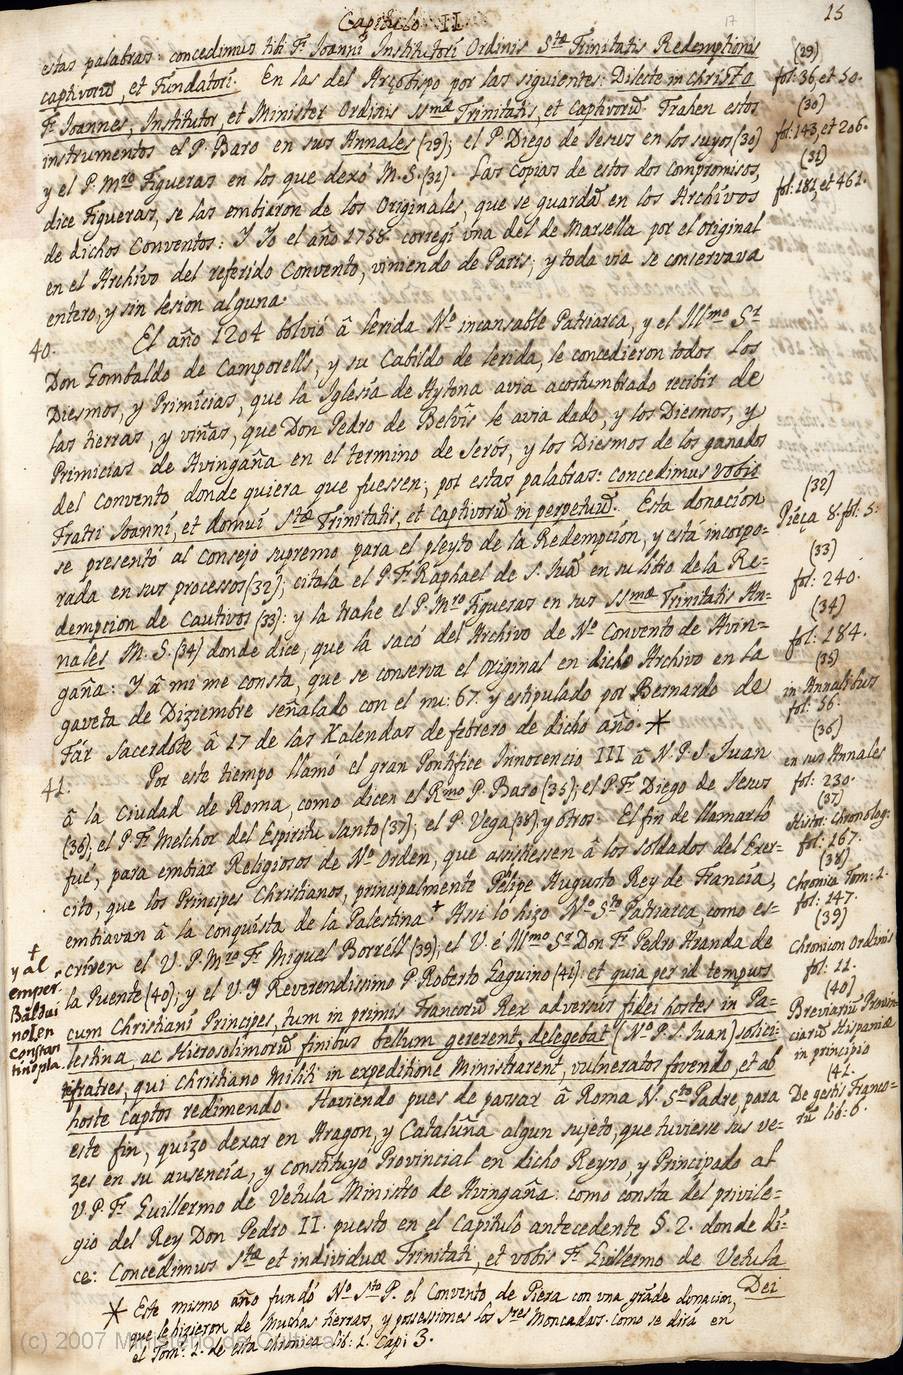 Capitulo II.
15
estas palabras: concedimus tibi Fr. Joanni Institutori Ordinis Stæ Trinitatis Redemptionis
captivorũ, et Fundatori. En las del Arzobispo por las siguientes: Dilecto in christo
Fr. Joannes, Institutor, et Minister Ordinis SSmæ Trinitatis, et captivorũ. Trahen estos
instrumentos el P. Baro en sus Annales (29); el P. Diego de Jesus en los suyos (30)
y el P. Mro. Figueras en los que dexó M.S. (31). Las copias de estos dos compromisos,
dice Figueras, se las embiaron de los Originales, que se guardã en los Archivos
de dichos Conventos: Y Yo el año 1758 corregí una del de Marsella por el original
en el Archivo del referido Convento, viniendo de Paris; y toda via se conservava
entero, y sin lesion alguna.
40. El año 1204 bolvió â lerida No. incansable Patriarca, y el Illmo Sr.
Don Gombaldo de Camporells, y su Cabildo de lerida, le concedieron todos los
Diesmos, y Primicias, que la Iglesia de Aytona avia acostumbrado recibir de
las tierras, y viñas, que Don Pedro de Belvis le avia dado, y los Diesmos, y
Primicias de Avingaña en el termino de Serós, y los Diesmos de los ganados
del Convento donde quiera que fuessen; por estas palabras: concedimus vobis
Fratri Joanni, et domui Stæ Trinitatis, et captivorũ in perpetuũ. Esta donacion
se presentó al Consejo supremo para el pleyto de la Redempcion, y está incorpo=
rada en sus processos (32); citala el P. Fr. Raphael de S. Juã en su libro de la Re=
dempcion de Cautivos (33): y la trahe el P. Mro Figueras en sus SSmæ Trinitatis An=
nales M.S. (34) donde dice, que la sacó del Archivo de No. Convento de Avin=
gaña: Y â mi me consta, que se conserva el original en dicho Archivo en la
gaveta de Diziembre señalado con el nu: 67. y estipulado por Bernardo de
Far Sacerdote â 17 de las Kalendas de febrero de dicho año. *
41. Por este tiempo llamó el gran Pontifice Innocencio III â N. P. S. Juan
â la Ciudad de Roma, como dicen el Rmo P. Baro (35); el P. Fr. Diego de Jesus
(36); el P. Fr. Melchor del Espiritu Santo (37); el P. Vega (38); y otros. El fin de llamarlo
fue, para embiar Religiosos de No. Orden, que assistiessen â los soldados del Exer=
cito, que los Principes Christianos, principalmente Felipe Augusto Rey de Francia,
embiavan â la conquista de la Palestina + Assi lo hizo No. Sto. Patriarca, como es=
criven el V. P. Mro Fr. Miguel Borrell (39); el V. é Illmo Sr. Don Fr. Pedro Aranda de
la Puente (40); y el V. y Reverendissimo P. Roberto Gaguino (41): et quia per id tempus
cum Christiani Principes, tum in primis Francorũ Rex adversus fidei hostes in Pa=
lestina, ac Hierosolimorũ finibus bellum gererent, delegebat (No. P. S. Juan) solici=
ti fratres, qui christiano militi in expeditione Ministrarent, vulneratos fovendo, et ab
hoste captos redimendo. Haviendo pues de passar â Roma N. Sto Padre, para
este fin, quizo dexar en Aragon, y Cataluña algun sujeto, que tuviesse sus ve=
zes en su ausencia, y constituyó Provincial en dicho Reyno, y Principado al
V. P. Fr. Guillermo de Vetula Ministro de Avingaña: como consta del privile=
gio del Rey Don Pedro II. puesto en el capitulo antecedente §. 2. donde di=
ce: Concedimus Stæ et individuæ Trinitati, et vobis Fr. Guillermo de Vetula
Dei
* Este mismo año fundó No. Sto. P. el Convento de Piera con una grãde donacion,
que le hizieron de muchas tierras, y possessiones los Sres Moncadas. Como se dirá en
el Tom. 2. de esta Chronica lib: 1. Capi 3.
+
y al
emper.
Baldui
no I. en
constan
tinopla.
(29)
fol: 36, et 50.
(30)
fol: 143, et 206.
(31)
fol: 181, et 461.
(32)
Pieça 8. fol: 5.
(33)
fol: 240.
(34)
fol: 184.
(35)
in Annalibus
fol: 56.
(36)
en sus Annales
fol: 230.
(37)
Histor. Chronolog.
fol: 267.
(38)
Chronica Tom: 1.
fol: 147.
(39)
Chronicon Ordinis
fol: 11.
(40)
Breviariũ Provin
ciarũ Hispaniæ
in principio
(41.
De gestis Franco=
rũ lib: 6.
(c) 2007 Ministerio de Cultura